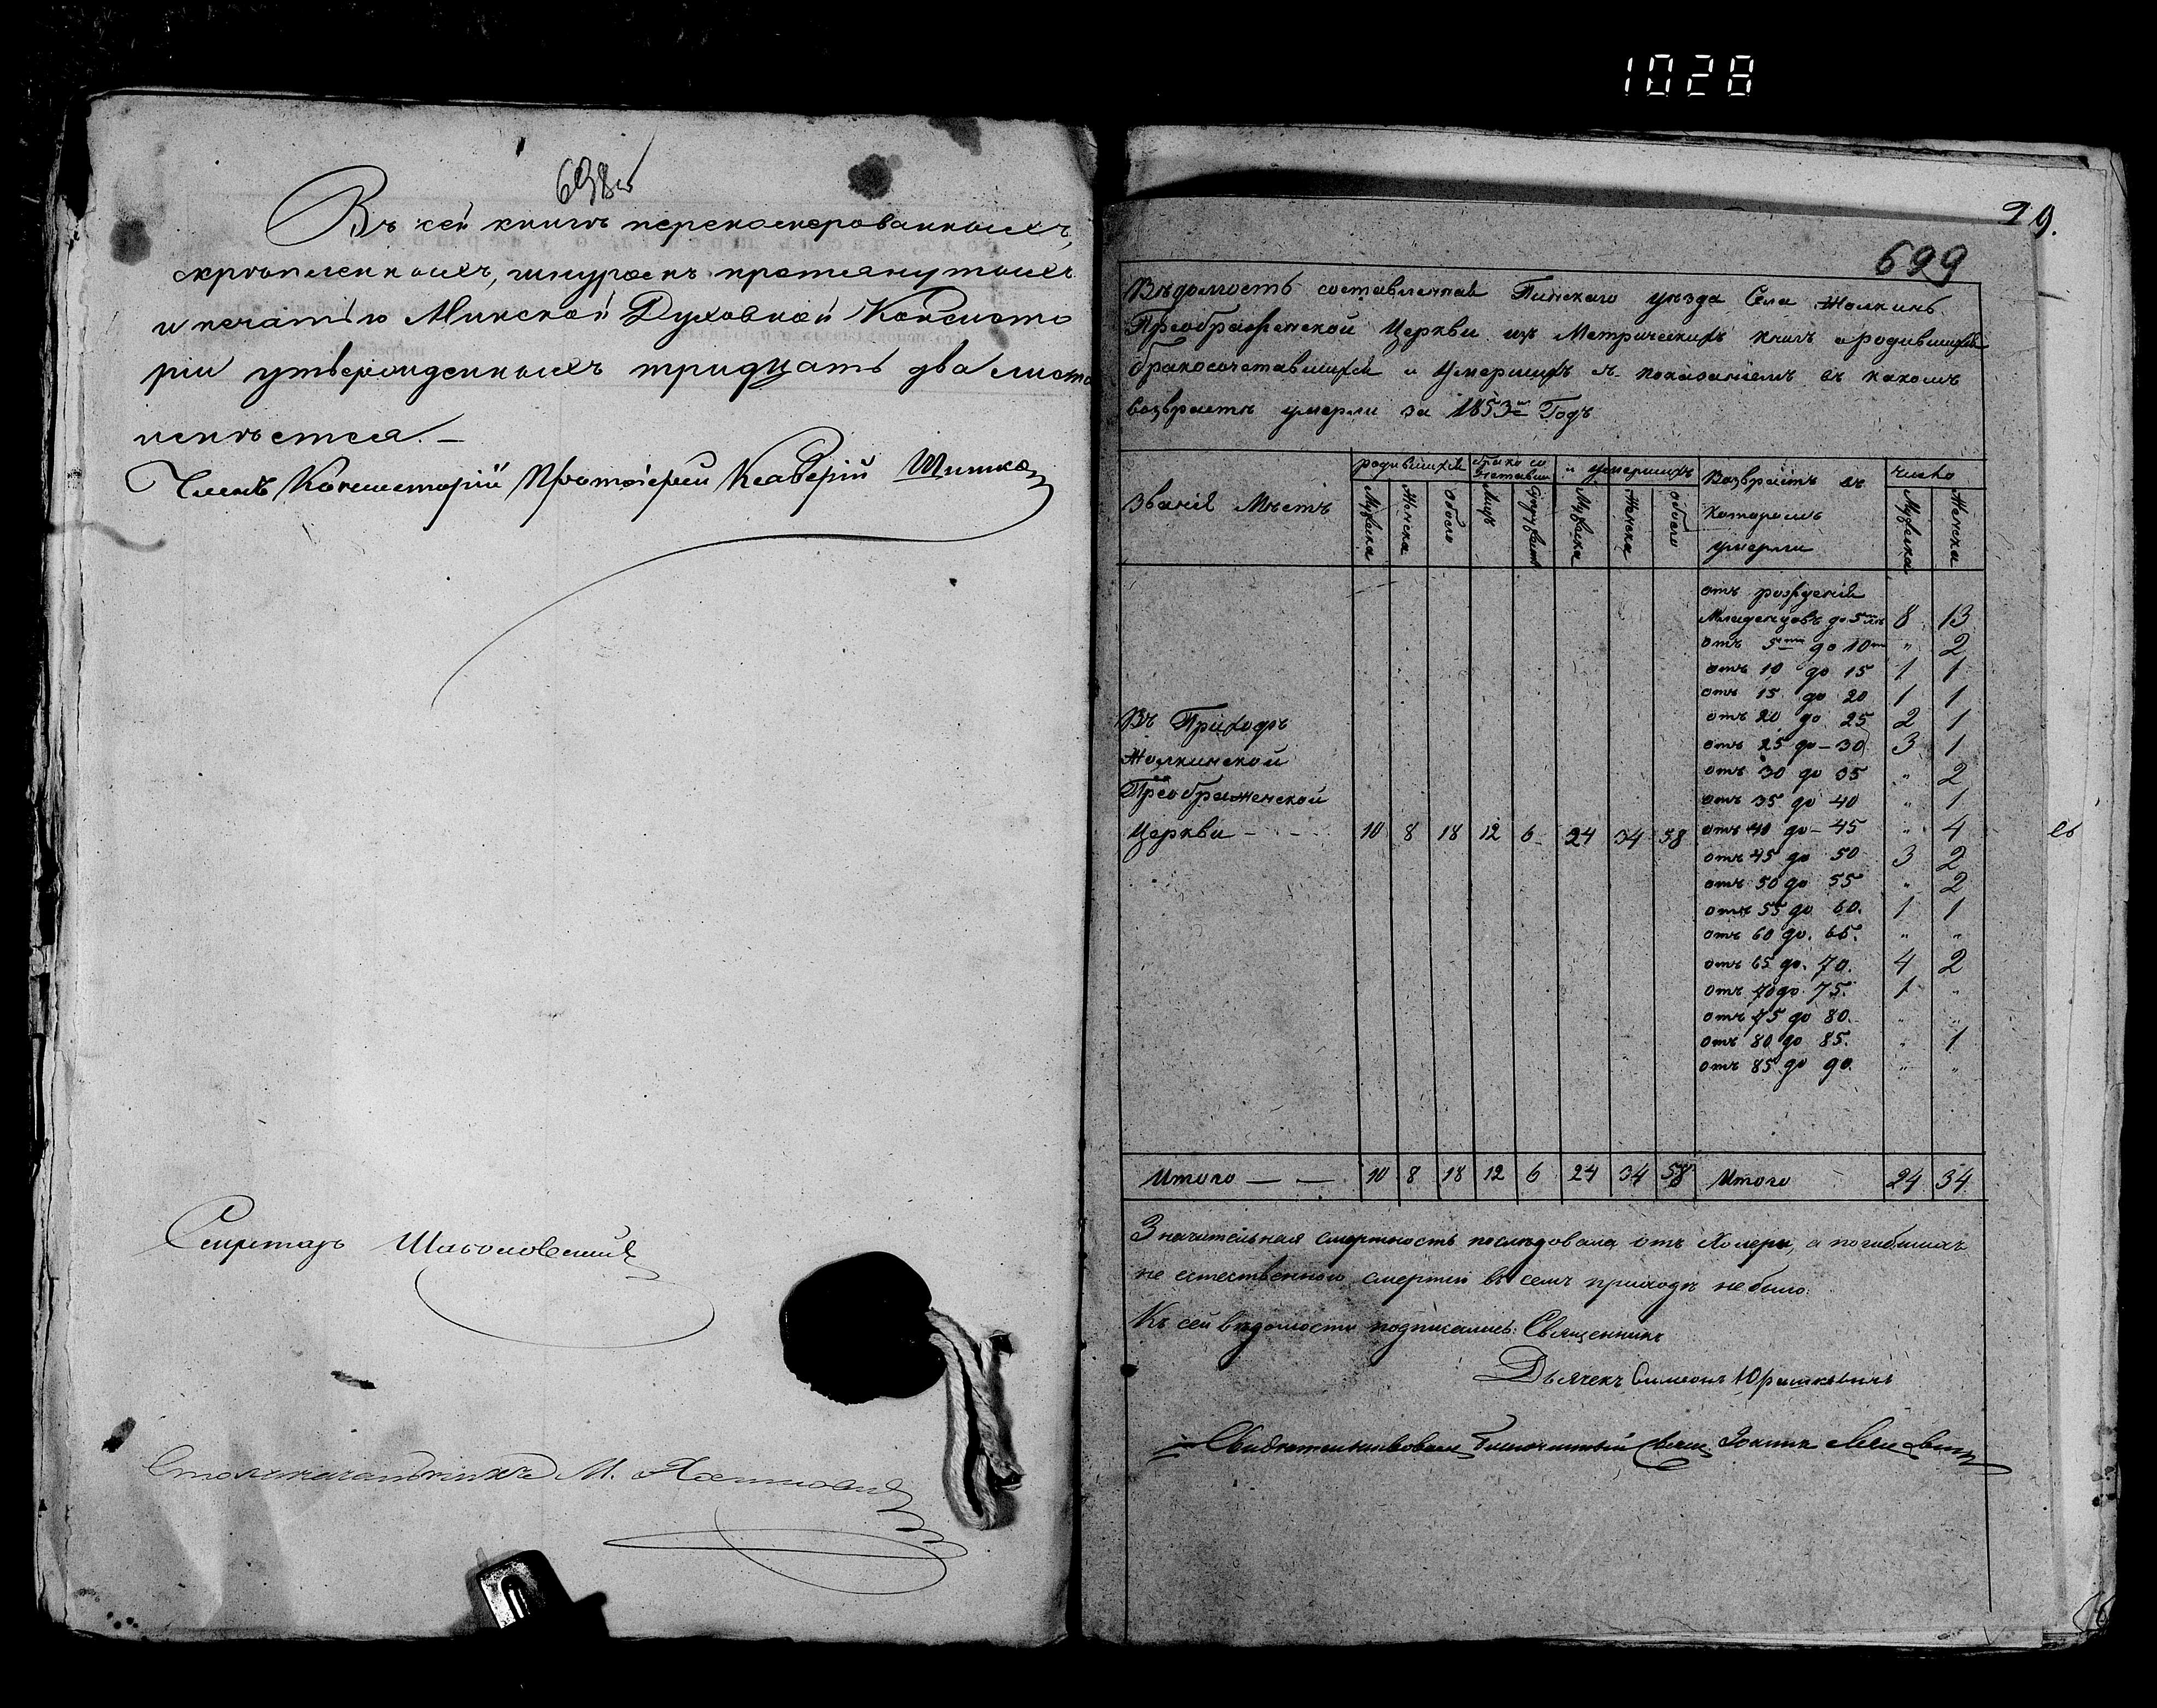 1028
698
Въ сей книгѣ перенумерованныхъ,
скрѣпленныхъ, шнуромъ протянутыхъ
и печатью Минской Духовной Консисто
ріи утвержденныхъ тридцать два листа
имѣется.—
Членъ Консисторіи Протоіерей
Секретарь
Столоначальникъ М.
29.
699
Вѣдомость составленная Пинскаго уѣзда Села Жолкинъ
Преображенской Церкви изъ Метрическихъ книгъ о родившихся
бракосочетавшихся и умершихъ съ показаніемъ въ какомъ
возврастѣ умерли за 1853й Годъ
званія Мѣстъ
родившихся
брако со четавших
и умершихъ
Возврастъ въ
которомъ
умерли
число
Мужеска Женска обоего Лицъ Мужеска Женска обоего Мужеска Женска
отъ рожденія
Младенцовъ до 5 лѣтъ 8 13
отъ 5ти до 10ти " 2
отъ 10 до 15 1 1
отъ 15 до 20 1 1
отъ 20 до 25 2 1
отъ 25 до – 30 3 1
отъ 30 до 35 " 2
отъ 35 до 40 " 1
отъ 40 до – 45 " 4
отъ 45 до 50 3 2
отъ 50 до 55 " 2
отъ 55 до 60. 1 1
отъ 60 до. 65. " "
отъ 65 до. 70. 4 2
отъ 70 до 75. 1 "
отъ 75 до 80. " "
отъ 80 до 85. " 1
отъ 85 до 90. " "
Въ Приходѣ
Жолкинской
Преображенской
Церкви – – – 10 8 18 12 6 24 34 58
Итого — — 10 8 18 12 6 24 34 58 Итого 24 34
Значительная смертность послѣдовала отъ Холеры, а погибшихъ
не естественною смертію въ семъ приходѣ не было.
Къ сей вѣдомости подписались: Священникъ
Дьячекъ Симеонъ Юрашкевичъ
Свидѣтельствовалъ Благочинный Свящ. Іоаннъ